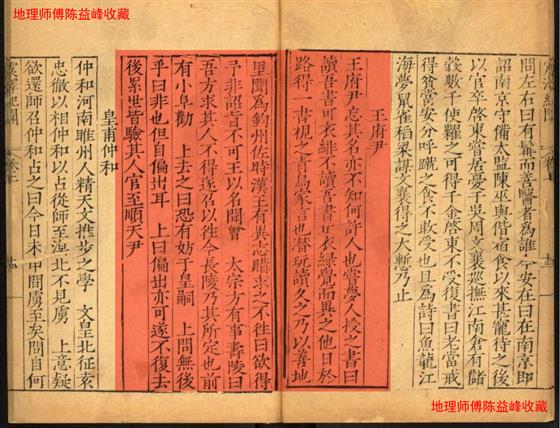 地理师傅陈益峰收藏
問左右曰有鬍而善醫者為誰今安在曰在南京即
詔南京守備太監陳巫與偕宿食以來甚寵待之後
以官卒啓東嘗居憂于吳周文襄巡撫江南倉有儲
穀數千使糶之可得千金啓東不受復書曰老當戒
得貧當安分呼蹴之食不敢受也且為詩曰魚龍江
海夢鼠雀稻粱謀文襄得之大慙乃止
王府尹
王府尹忘其名亦不知何許人也嘗夢人授之書曰
讀吾書可衣緋不讀吾書可衣綠覺而異之他日於
路得一書視之青烏家言也潛玩讀久之乃以善地
里聞為鈞州佐時漢王有異志購求之不徃曰欲得
予非詔旨不可王以名聞會 太宗方有事壽陵曰
吾方求其人不得遂召以徃今長陵乃其所定也前
有小阜勸 上去之曰恐有妨于皇嗣 上問無後
乎曰非也但自偏出耳 上曰偏出亦可遂不復去
後累世皆驗其人官至順天尹
皇甫仲和
仲和河南睢州人精天文推步之學 文皇北征袁
忠徹以相仲和以占從師至漠北不見虜 上意疑
欲還師召仲和占之曰今日未申間虜至矣問自何
震澤紀聞
卷上
地理师傅陈益峰收藏